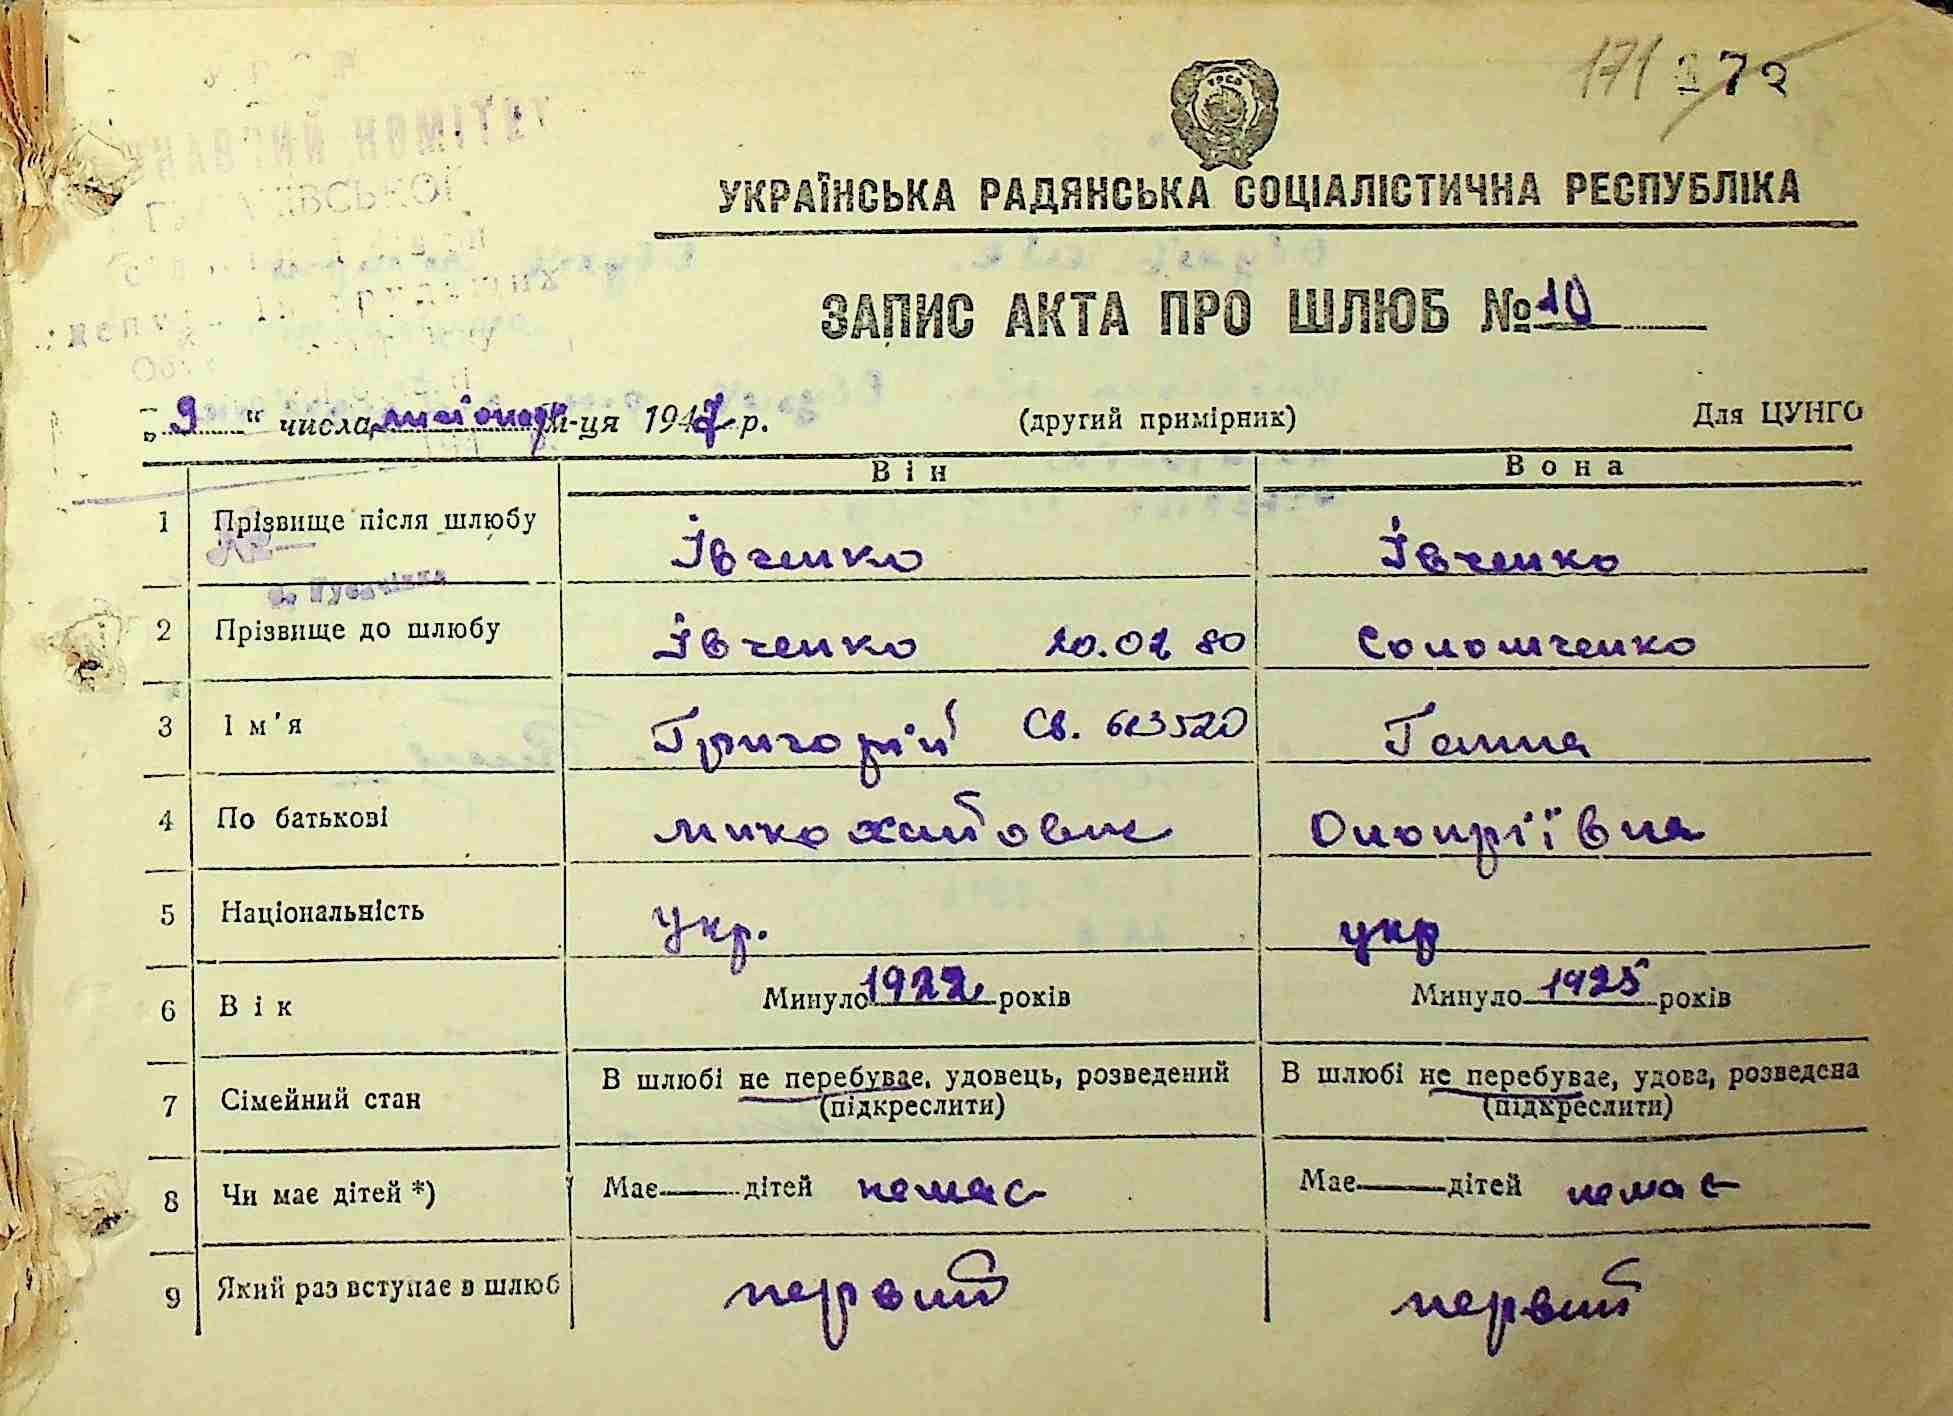 171 172
УРСР
УКРАЇНСЬКА РАДЯНСЬКА СОЦІАЛІСТИЧНА РЕСПУБЛІКА
ЗАПИС АКТА ПРО ШЛЮБ № 10
„ 9 “ числа листопад м-ця 1947 р. (другий примірник) Для ЦУНГО
Він Вона
1 Прізвище після шлюбу Івченко Івченко
2 Прізвище до шлюбу Івченко 20.02 80 Соломченко
3 Ім'я Григорій Св. 613520 Ганна
4 По батькові Михайлович Оноприївна
5 Національність укр. укр
6 Вік Минуло 1922 років Минуло 1925 років
7 Сімейний стан В шлюбі не перебуває, удовець, розведений В шлюбі не перебуває, удова, розведена
(підкреслити) (підкреслити)
8 Чи має дітей *) Має дітей немає Має дітей немає
9 Який раз вступає в шлюб первий первий